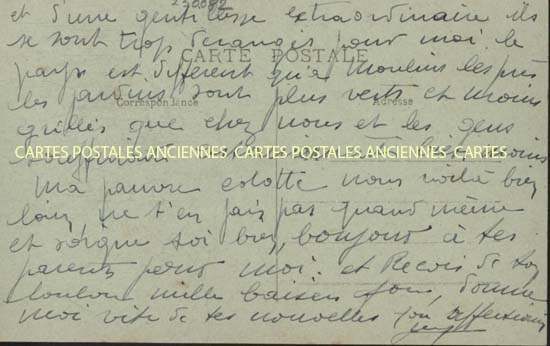 230082
et d'une gentillesse extraordinaire ils
se sont trop derangés pour moi le
CARTE POSTALE
pays est different qu'a Moulins les prés
les jardins sont plus verts et moins
Correspondance Adresse
grillés que chez nous et les gens
CARTES POSTALES ANCIENNES - CARTES POSTALES ANCIENNES - CARTES
Ma pauvre colotte nous voilà bien
loin ne t'en fais pas quand même
et soigne toi bien, bonjour à tes
parents pour moi. et Recois de ton
loulou mille baisers fous, donne
moi vite de tes nouvelles ton affectionné